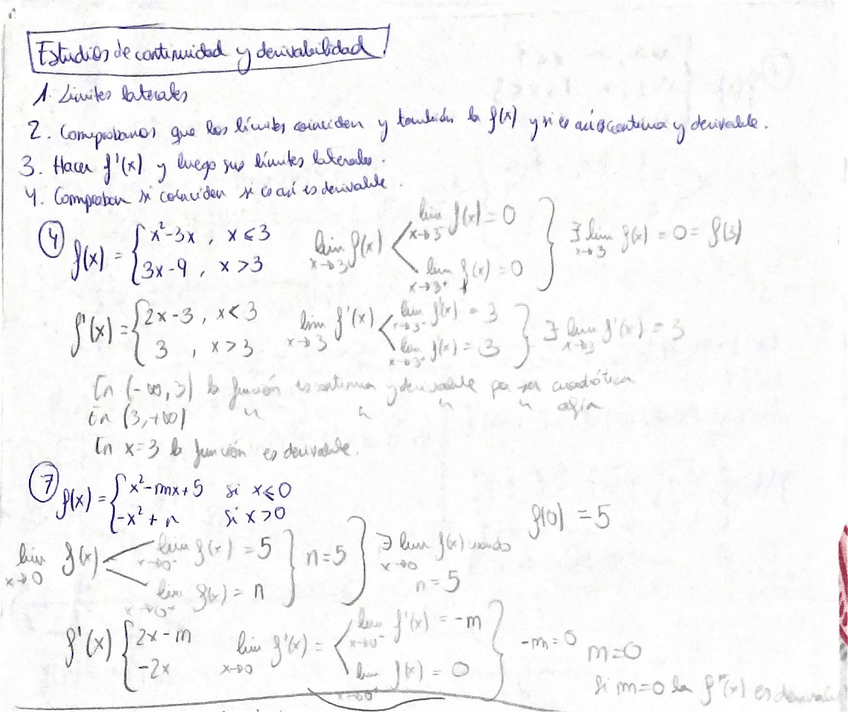 Estudios de continuidad y derivabilidad
1. Límites laterales
2. Comprobamos que los límites coinciden y también la f(x) y si es así es continua y derivable.
3. Hacer f'(x) y luego sus límites laterales.
4. Comprobar si coinciden si es así es derivable.
④ f(x) = { x²-3x , x ≤ 3
3x-9 , x > 3
lim x→3 f(x) < lim x→3⁻ f(x) = 0
lim x→3⁺ f(x) = 0 } ∃ lim x→3 f(x) = 0 = f(3)
f'(x) = { 2x-3 , x < 3
3 , x > 3
lim x→3 f'(x) < lim x→3⁻ f'(x) = 3
lim x→3⁺ f'(x) = 3 } ∃ lim x→3 f'(x) = 3
En (-∞, 3) la función es continua y derivable por ser cuadrática
En (3, +∞) " " " " afín
En x=3 la función es derivable.
⑦ f(x) = { x²-mx+5 si x ≤ 0
-x²+n si x > 0
f(0) = 5
lim x→0 f(x) < lim x→0⁻ f(x) = 5
lim x→0⁺ f(x) = n } n=5 } ∃ lim x→0 f(x) cuando
n=5
f'(x) { 2x-m
-2x
lim x→0 f'(x) = < lim x→0⁻ f'(x) = -m
lim x→0⁺ f(x) = 0 } -m=0 m=0
Si m=0 la f'(x) es derivable